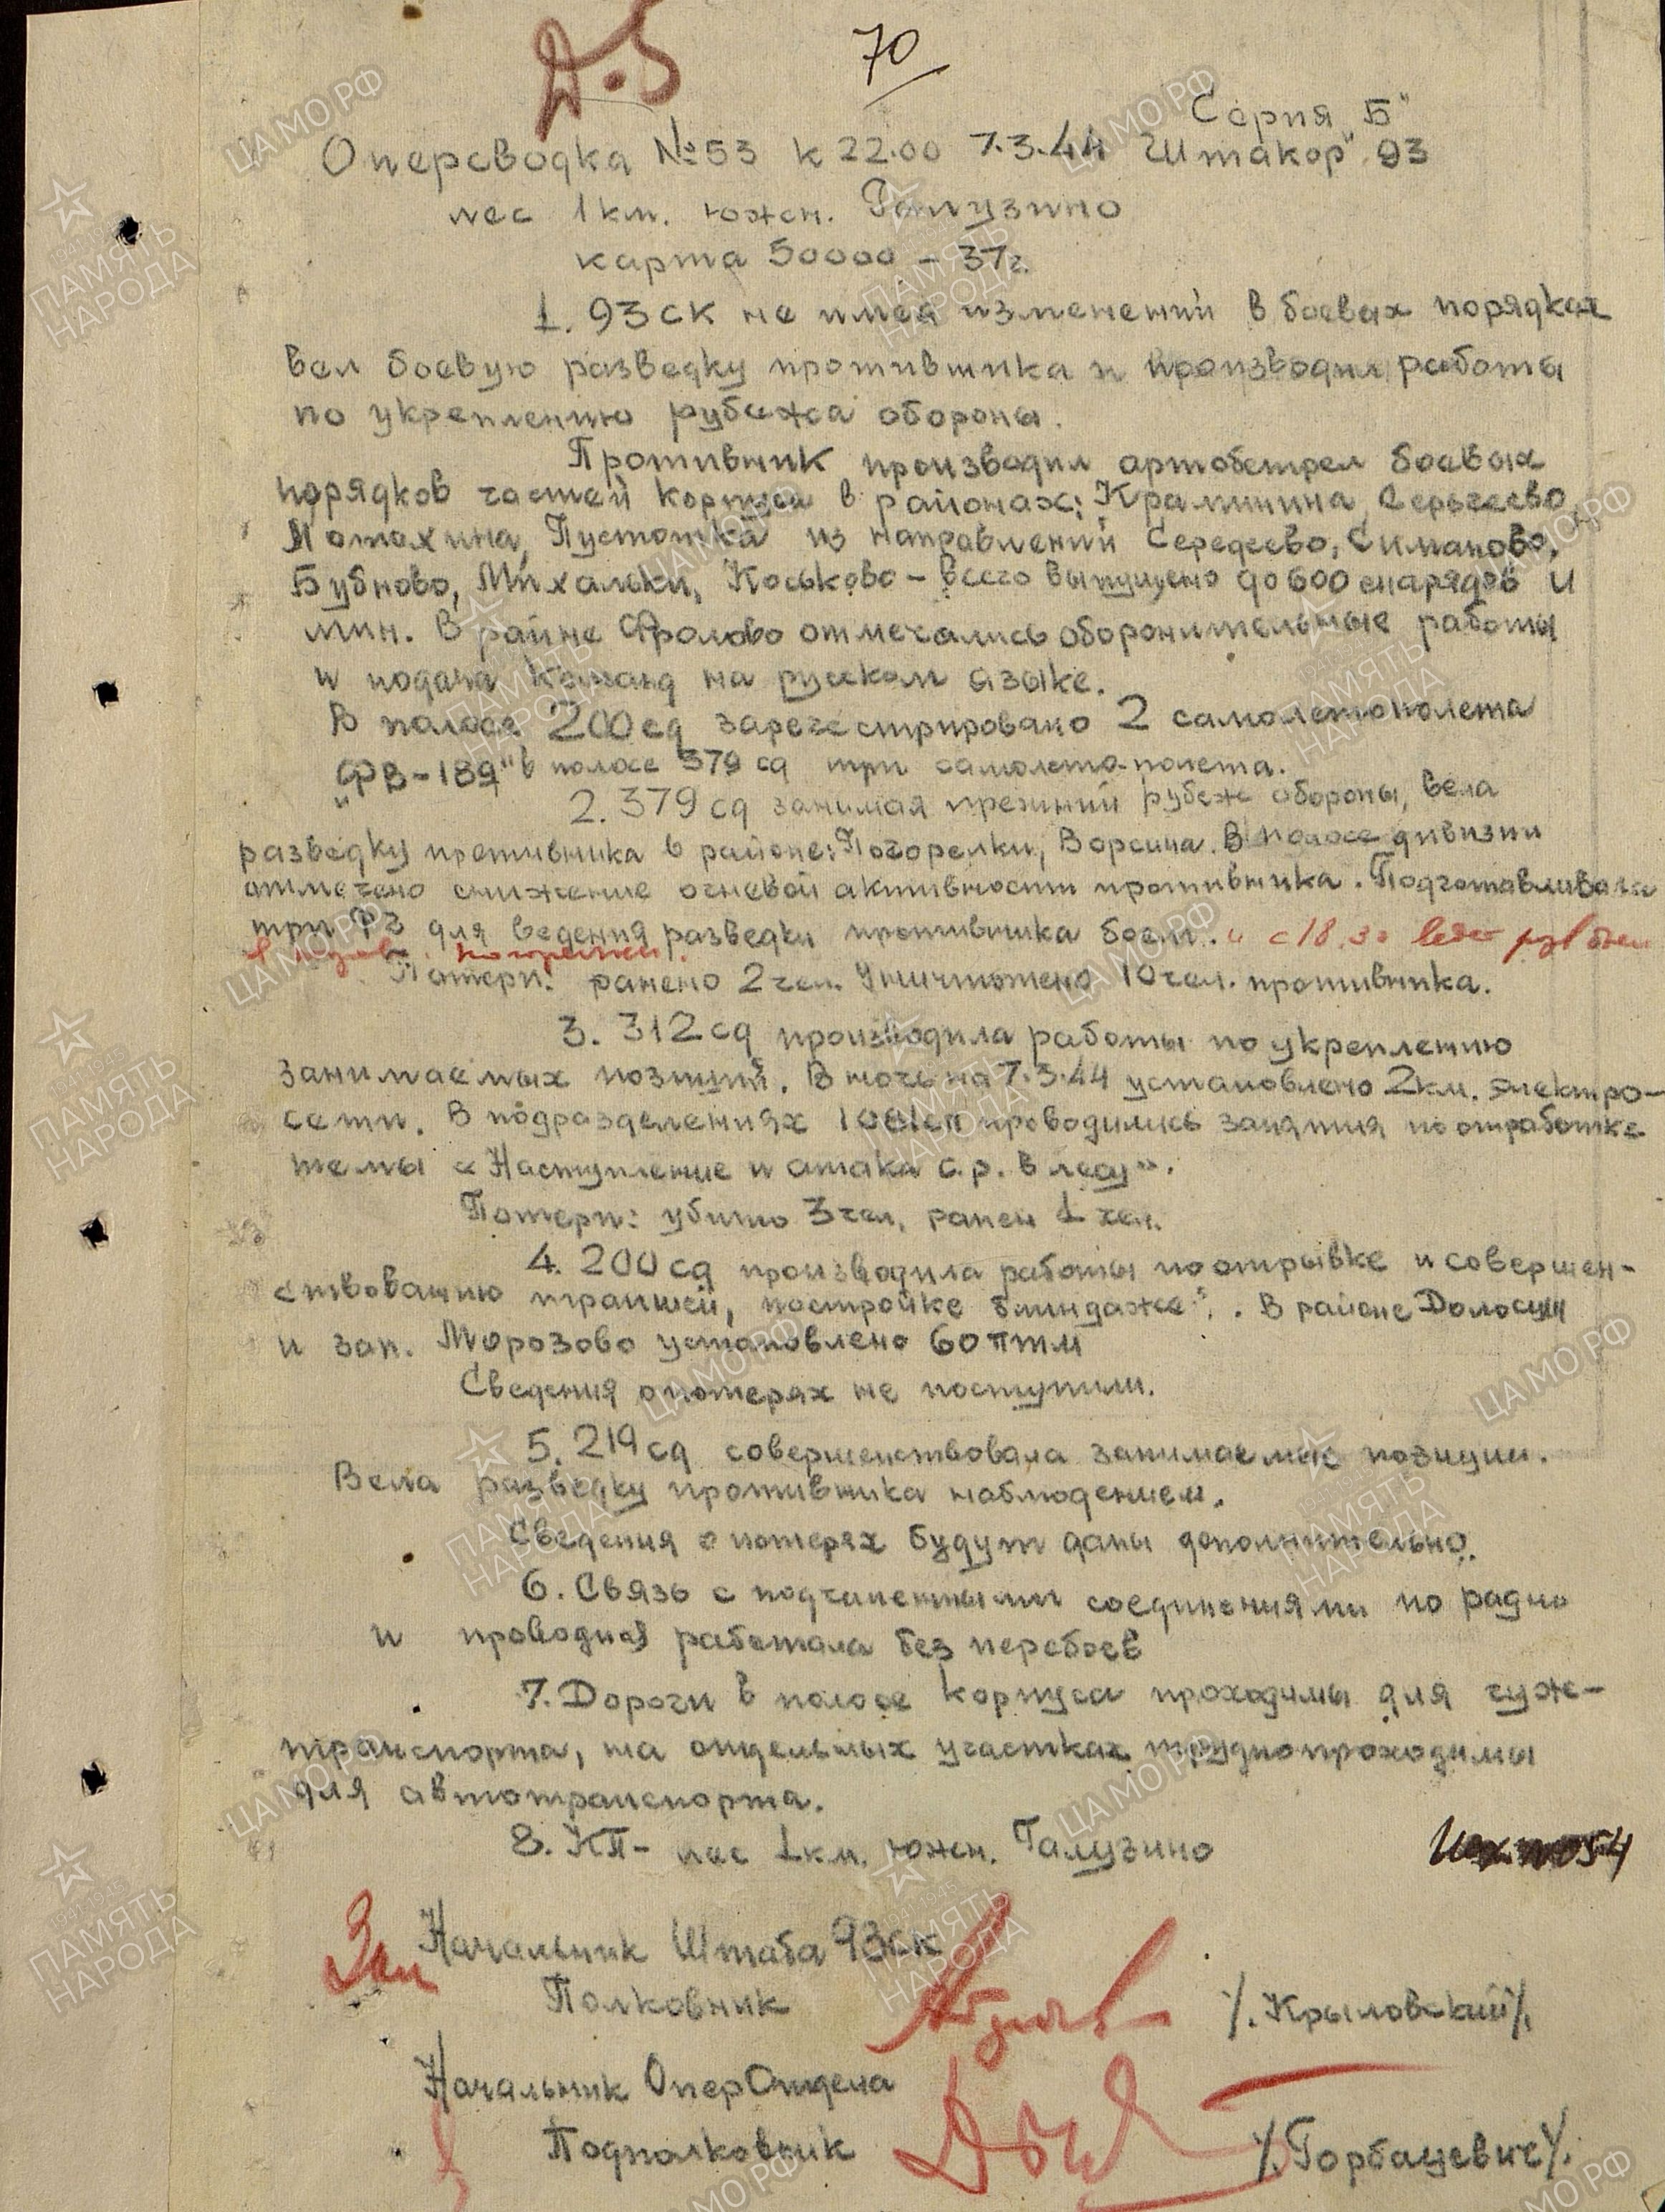 Д.5
70
Серия „Б"
Оперсводка №53 к 22.00 7.3.44 Штакор 93
лес 1 км. южн. Галузино
карта 50000 – 37г.
1. 93 ск не имея изменений в боевых порядках
вел боевую разведку противника и производил работы
по укреплению рубежа обороны.
Противник производил артобстрел боевых
порядков частей корпуса в районах: Крамнина, Сергеево,
Потахина, Пустошка из направлений Середеево, Симаново,
Бубново, Михальки, Коськово – всего выпущено до 600 снарядов и
мин. В райне Фролово отмечались оборонительные работы
и подача команд на руском языке.
В полосе 200 сд зарегестрировано 2 самолетополета
„ФВ-189" в полосе 379 сд три самолето-полета.
2. 379 сд занимая прежний рубеж обороны, вела
разведку противника в районе: Погорелки, Ворсина. В полосе дивизии
отмечено снижение огневой активности противника. Подготавливала
три РГ для ведения разведки противника боем. и с 18.30 ведет
Погорелки.
Потери: ранено 2 чел. Уничтожено 10 чел. противника.
3. 312 сд производила работы по укреплению
занимаемых позиций. В ночь на 7.3.44 установлено 2 км. электро-
сети. В подразделениях 1081 сп проводились занятия по отработке
темы «Наступление и атака с.р. в лесу».
Потери: убито 3 чел, ранен 1 чел.
4. 200 сд производила работы по отрывке и совершен-
ствованию траншей, постройке блиндажей. В районе Долосцы
и зап. Морозово установлено 60 птм
Сведения о потерях не поступили.
5. 219 сд совершенствовала занимаемые позиции.
Вела разведку противника наблюдением.
Сведения о потерях будут даны дополнительно.
6. Связь с подчиненными соединениями по радио
и проводная работала без перебоев
7. Дороги в полосе корпуса проходимы для гуж-
транспорта, на отдельных участках труднопроходимы
для автотранспорта.
8. КП – лес 1 км. южн. Галузино
Зам Начальник Штаба 93 ск
Полковник /.Крыловский/.
Начальник ОперОтдела
Подполковник /.Горбацевич/.